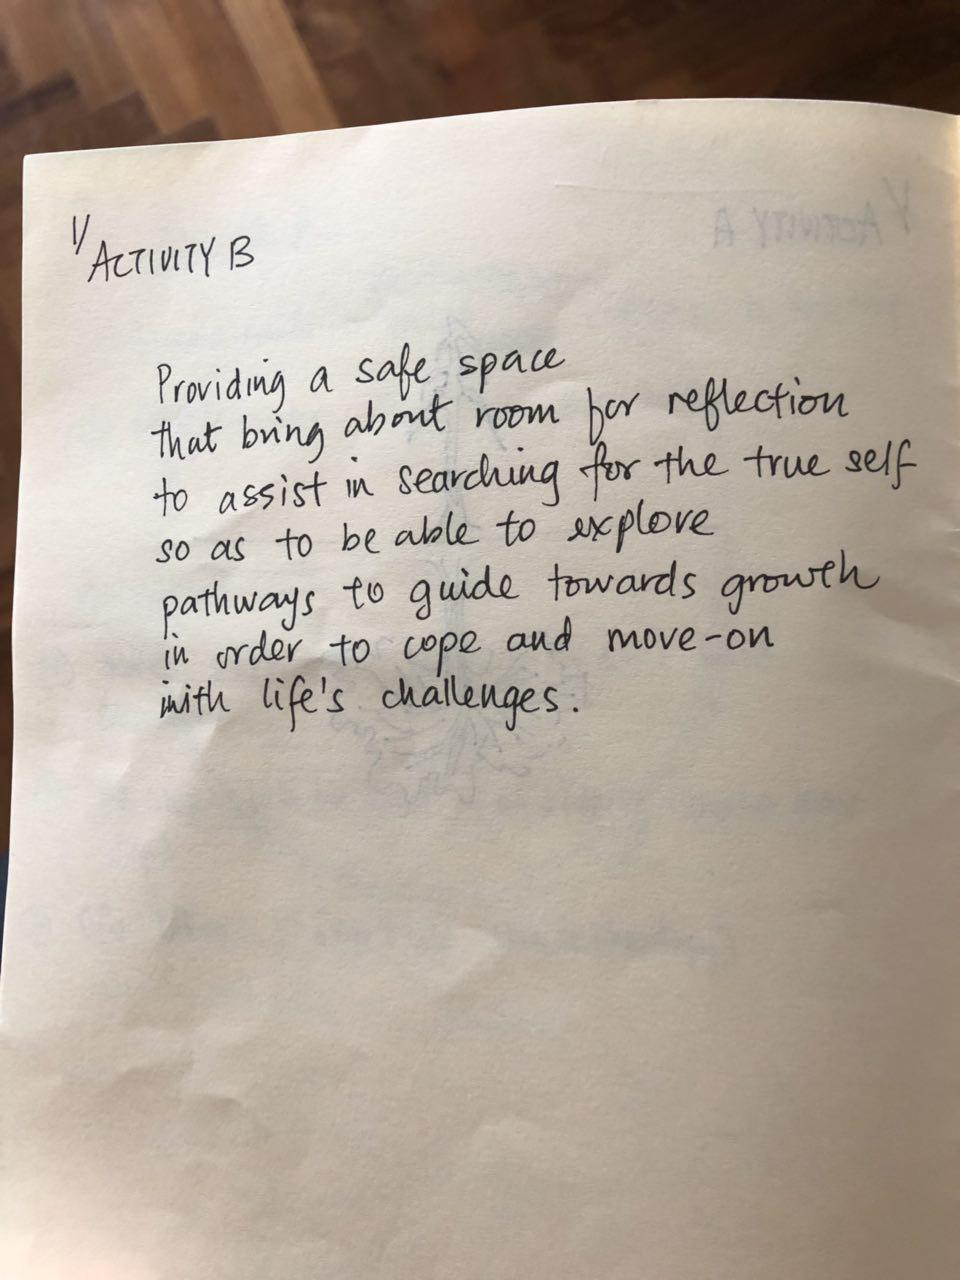 1/ ACTIVITY B
Providing a safe space
that bring about room for reflection
to assist in searching for the true self
so as to be able to explore
pathways to guide towards growth
in order to cope and move-on
with life's challenges.
1/ ACTIVITY A